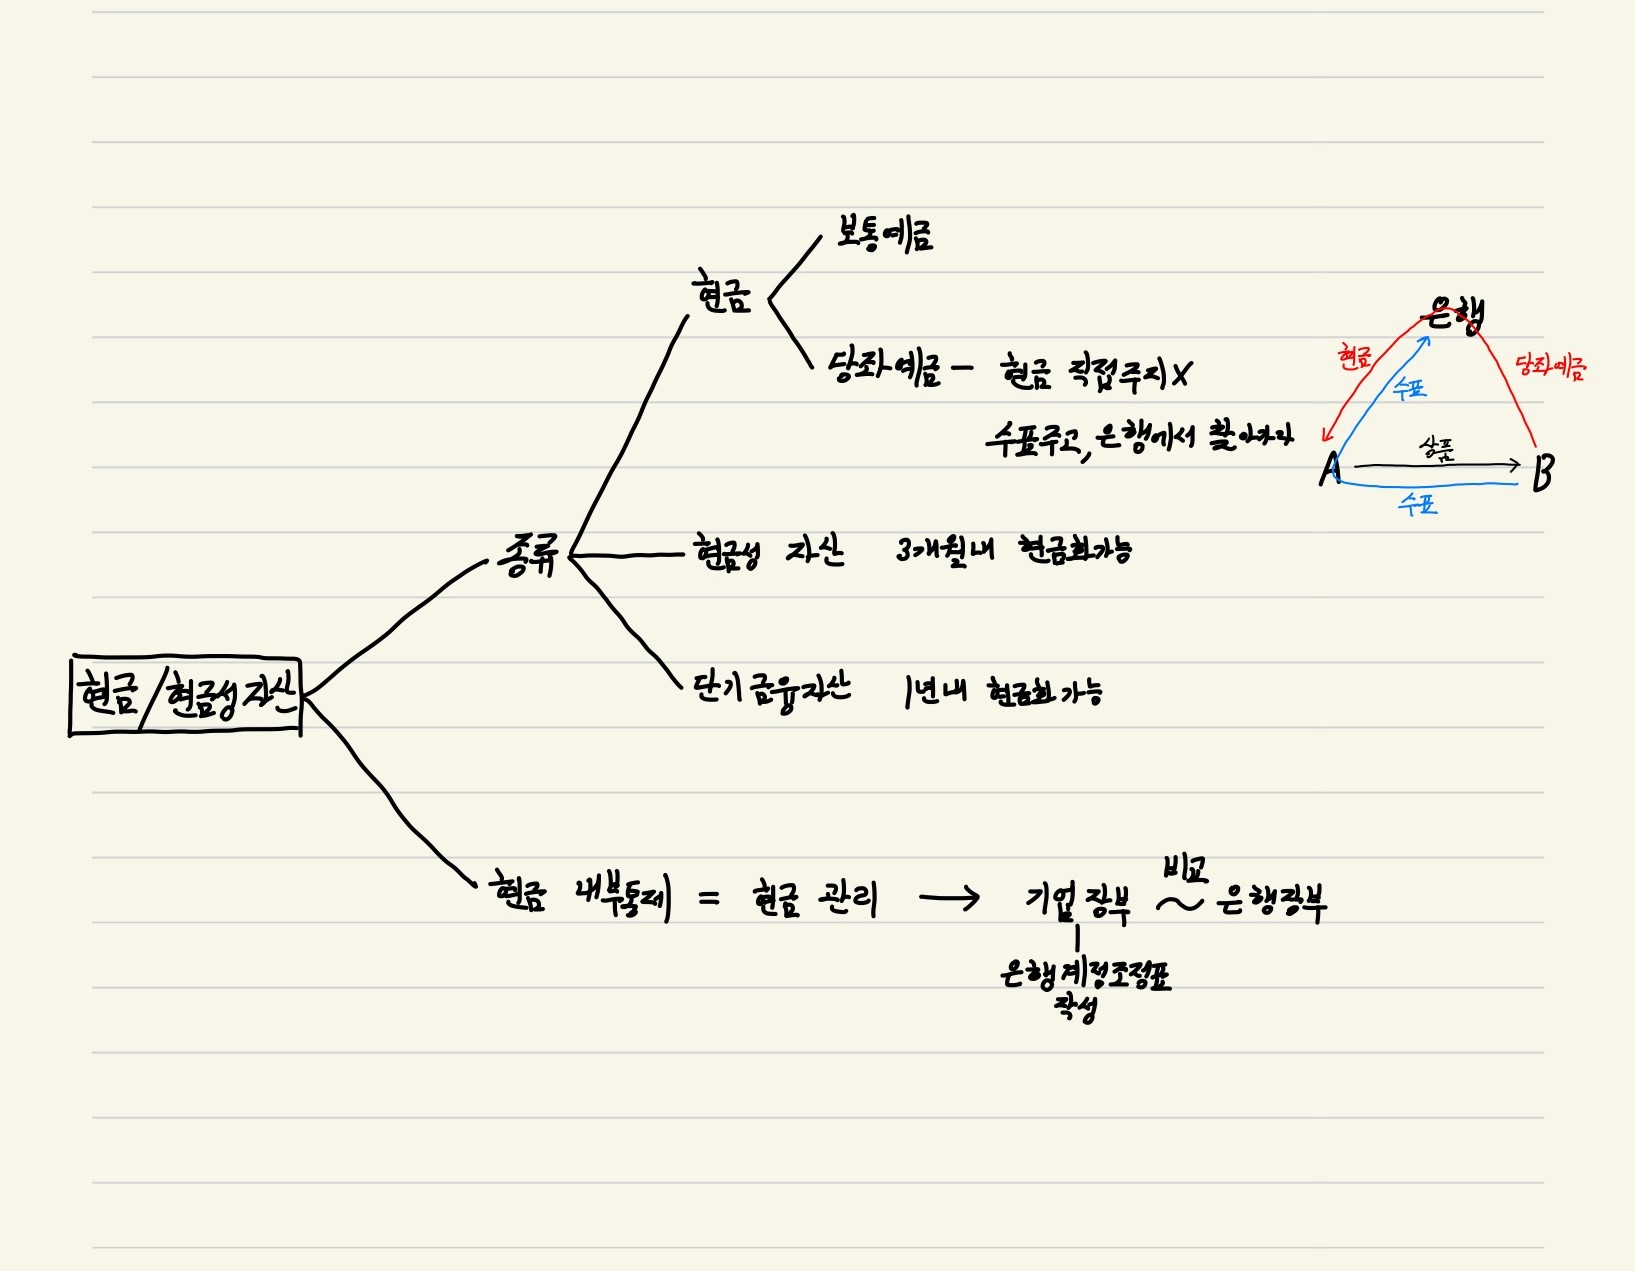 보통예금
현금
당좌예금 - 현금 직접주지X
수표주고, 은행에서 찾아가라
은행
현금
수표
당좌예금
상품
A
B
수표
종류
현금성 자산 3개월내 현금화가능
현금/현금성자산
단기금융자산 1년내 현금화가능
현금 내부통제 = 현금 관리 → 기업장부 ~ 은행장부
비교
은행계정조정표
작성